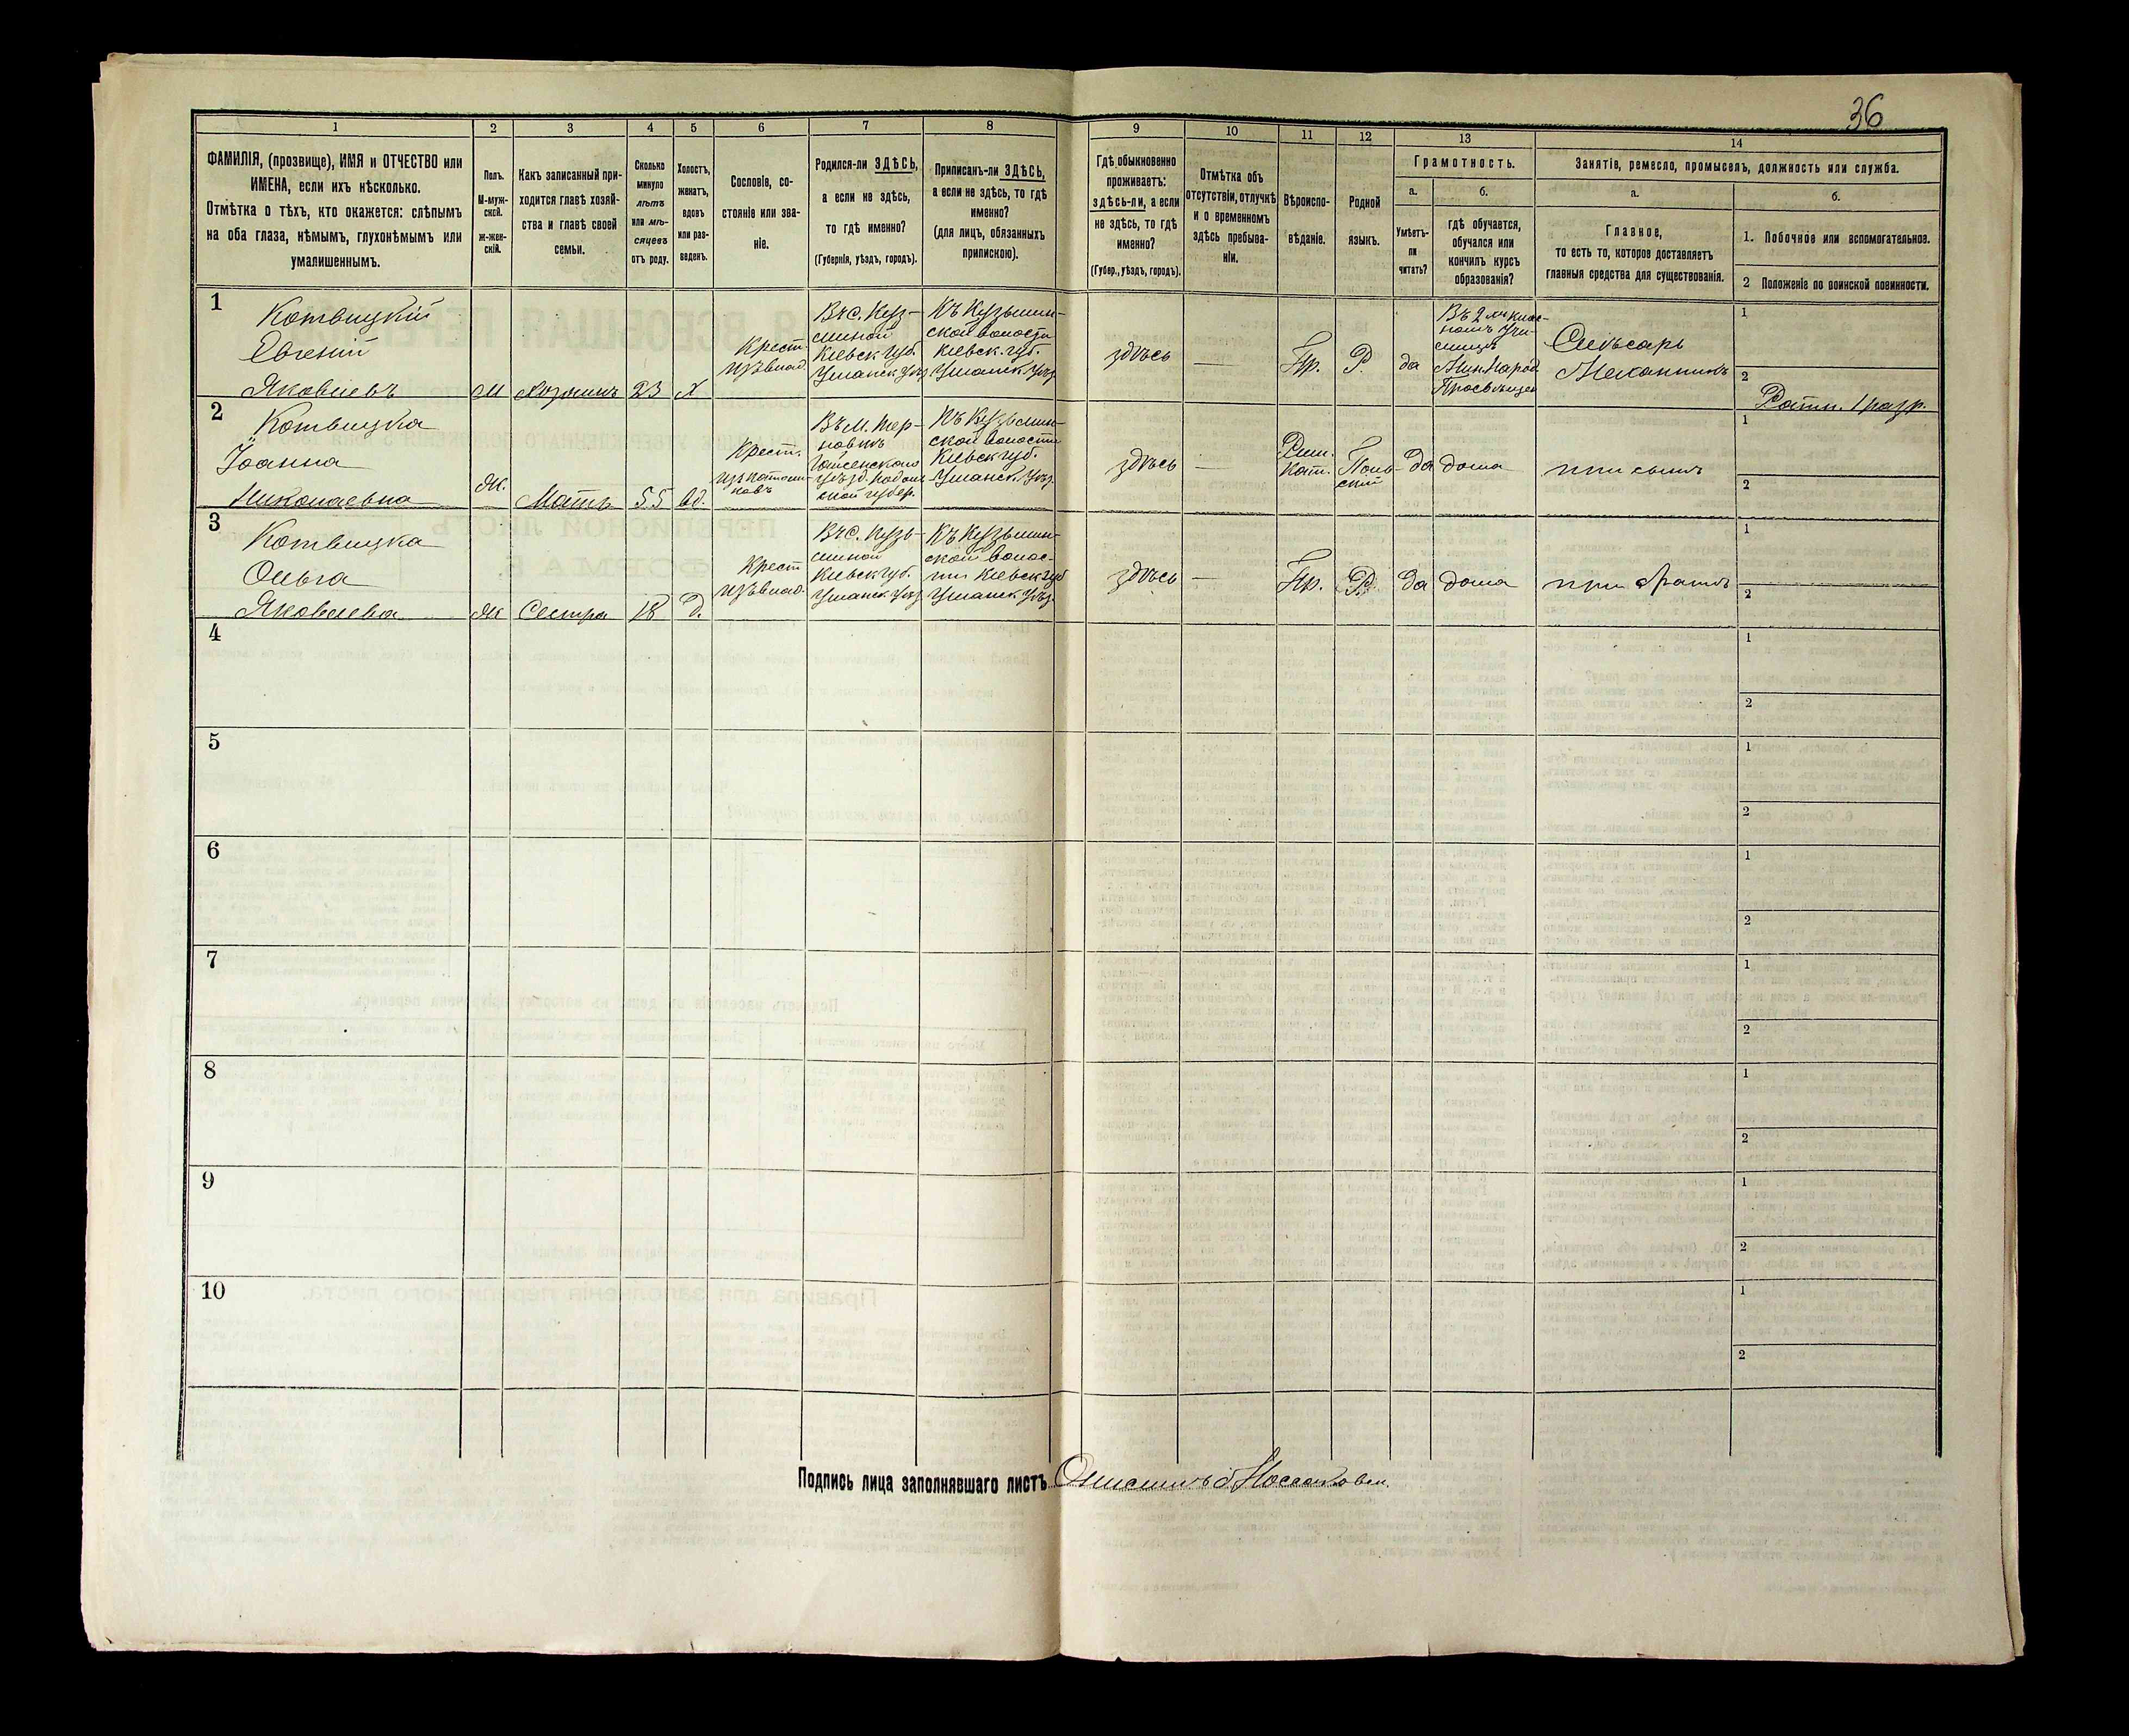 36
1 2 3 4 5 6 7 8 9 10 11 12 13 14
ФАМИЛІЯ, (прозвище), ИМЯ и ОТЧЕСТВО или
ИМЕНА, если ихъ нѣсколько.
Отмѣтка о тѣхъ, кто окажется: слѣпымъ
на оба глаза, нѣмымъ, глухонѣмымъ или
умалишеннымъ.
Полъ.
М-муж-
ской.
ж-жен-
скій.
Какъ записанный при-
ходится главѣ хозяй-
ства и главѣ своей
семьи.
Сколько
минуло
лѣтъ
или мѣ-
сяцевъ
отъ роду.
Холостъ,
женатъ,
вдовъ
или раз-
веденъ.
Сословіе, со-
стояніе или зва-
ніе.
Родился-ли ЗДѢСЬ,
а если не здѣсь,
то гдѣ именно?
(Губернія, уѣздъ, городъ).
Приписанъ-ли ЗДѢСЬ,
а если не здѣсь, то гдѣ
именно?
(для лицъ, обязанныхъ
припискою).
Гдѣ обыкновенно
проживаетъ:
здѣсь-ли, а если
не здѣсь, то гдѣ
именно?
(Губер., уѣздъ, городъ).
Отмѣтка объ
отсутствіи, отлучкѣ
и о временномъ
здѣсь пребыва-
ніи.
Вѣроиспо-
вѣданіе.
Родной
языкъ.
Грамотность.
а.
Умѣетъ-
ли
читать?
б.
гдѣ обучается,
обучался или
кончилъ курсъ
образованія?
Занятіе, ремесло, промыселъ, должность или служба.
а.
Главное,
то есть то, которое доставляетъ
главныя средства для существованія.
б.
1. Побочное или вспомогательное.
2 Положеніе по воинской повинности.
1
Котвицкій
Евгеній
Яковлевъ
М
Хозяинъ
23
Х
Крест.
изъ влад.
Въ с. Кузь-
миной
Кіевск губ.
Уманск Уѣз
Къ Кузьмин-
ской волости
Кіевск. губ.
Уманск Уѣз.
здѣсь
—
Пр.
Р.
да
Въ 2хъ клас-
номъ Учи-
лищѣ
Мин. Народ
Просвѣщен
Слѣсарь
Механикъ
1
2
Ратн. 1 разр.
2
Котвицка
Іоанна
Николаевна
Ж.
Мать
55
Вд.
Крест.
Въ м. Тер-
новкѣ
Гайсенскаго
уѣзд. Подоль
ской губер.
Къ Кузьмин-
ской волости
Кіевск губ.
Уманск. Уѣз.
здѣсь
—
Рим.
Кат.
Поль-
скій
да
дома
при сынѣ
1
2
3
Котвицка
Ольга
Яковлева
Ж
Сестра
18
Д.
Крест
изъ влад.
Въ с. Кузь-
миной
Кіевск губ.
Уманск Уѣз.
Къ Кузьмин-
ской волос-
ти Кіевск губ
Уманск Уѣз.
здѣсь
—
Пр.
Р.
да
дома
при братѣ
1
2
4
1
2
5
1
2
6
1
2
7
1
2
8
1
2
9
1
2
10
1
2
Подпись лица заполнявшаго листъ